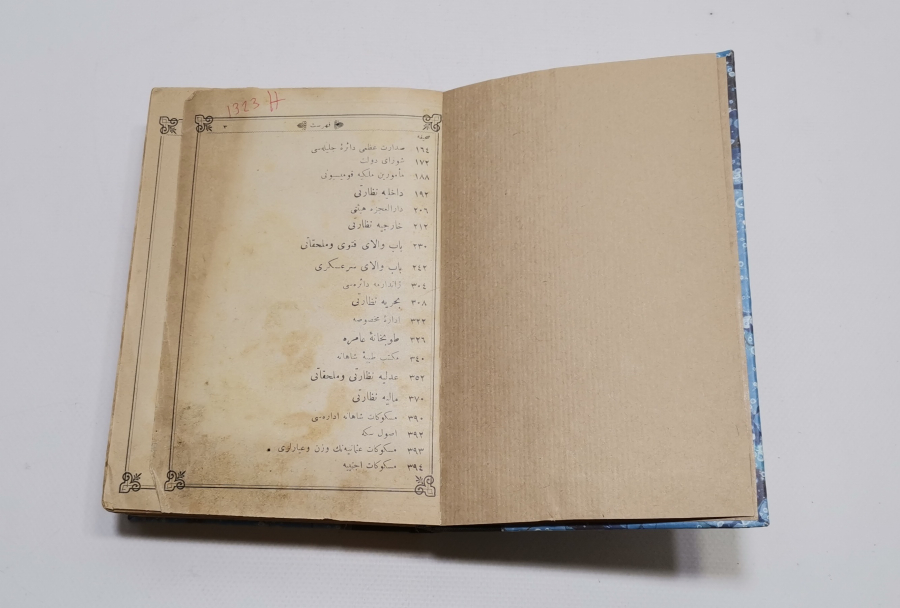 1323 H
٣ فهرست
صحيفه
١٦٤ صدارت عظمى دائرهٔ جليله‌سى
١٧٢ شوراى دولت
١٨٨ مأمورين ملكيه قوميسيونى
١٩٢ داخليه نظارتى
٢٠٦ دارالعجزه هيئتى
٢١٢ خارجيه نظارتى
٢٣٠ باب والاى فتوى وملحقاتى
٢٤٢ باب والاى سرعسكرى
٣٠٤ ژاندارمه دائره‌سى
٣٠٨ بحريه نظارتى
٣٢٢ ادارهٔ مخصوصه
٣٢٦ طوپخانهٔ عامره
٣٤٠ مكتب طبيهٔ شاهانه
٣٥٢ عدليه نظارتى وملحقاتى
٣٧٠ ماليه نظارتى
٣٩٠ مسكوكات شاهانه اداره‌سى
٣٩٢ اصول سكه
٣٩٣ مسكوكات عثمانيه‌نك وزن وعيارلرى
٣٩٤ مسكوكات اجنبيه